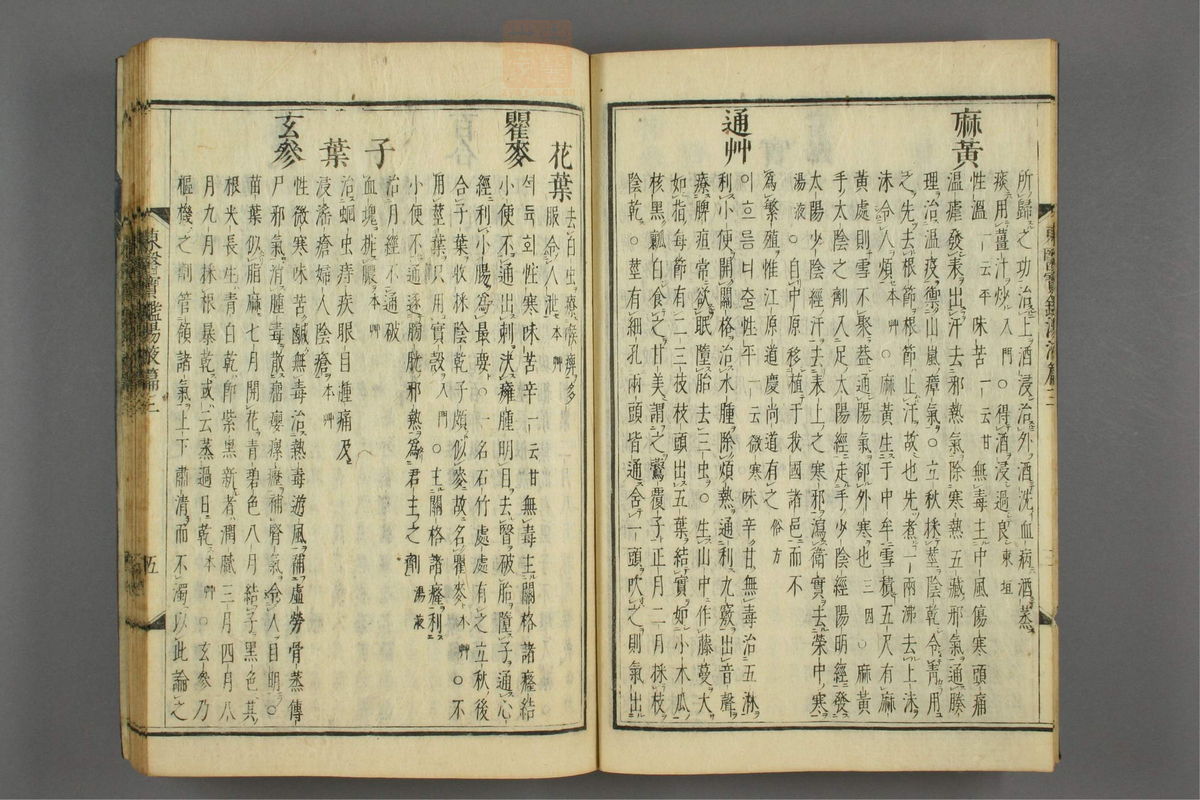 所歸之功治上酒浸治外酒洗血病酒蒸
痰用薑汁炒入門○得酒浸過良東垣
麻黃
性溫一云平味苦一云甘無毒主中風傷寒頭痛
溫瘧發表出汗去邪熱氣除寒熱五藏邪氣通腠
理治溫疫禦山嵐瘴氣○立秋採莖陰乾令靑用
之先去根節根節止汗故也先煮一兩沸去上沫
沫令人煩本艸○麻黃生于中牟雪積五尺有麻
黃處則雪不聚盖通陽氣卻外寒也三因○麻黃
手太陰之劑入足太陽經走手少陰經陽明經發
太陽少陰經汗去表上之寒邪瀉衛實去榮中寒
湯液○自中原移植于我國諸邑而不
爲繁殖惟江原道慶尙道有之俗方
通艸
이흐름너출性平一云微寒味辛甘無毒治五淋
利小便開關格治水腫除煩熱通利九竅出音聲
療脾疸常欲眠墮胎去三虫○生山中作藤蔓大
如指每節有二三枝枝頭出五葉結實如小木瓜
核黑瓤白食之甘美謂之鷰覆子正月二月採枝
陰乾○莖有細孔兩頭皆通含一頭吹之則氣出
東醫寶鑑湯液篇三
花葉
去白虫療喉痺多
服令人泄本艸
瞿麥
석듁화性寒味苦辛一云甘無毒主關格諸癃結
小便不通出刺決癰腫明目去瞖破胎墮子通心
經利小腸爲最要○一名石竹處處有之立秋後
合子葉收採陰乾子頗似麥故名瞿麥本艸○不
用莖葉只用實殼入門○主關格諸癃利
小便不通逐膀胱邪熱爲君主之劑湯液
子
治月經不通破
血塊排膿本艸
葉
治蛔虫痔疾眼目腫痛及
浸淫瘡婦人陰瘡本艸
玄參
性微寒味苦鹹無毒治熱毒遊風補虛勞骨蒸傳
尸邪氣消腫毒散瘤癭瘰癧補腎氣令人目明○
苗葉似脂麻七月開花靑碧色八月結子黑色其
根尖長生靑白乾卽紫黑新者潤膩三月四月八
月九月採根暴乾或云蒸過日乾本艸○玄參乃
樞機之劑管領諸氣上下肅淸而不濁以此論之
東醫寶鑑湯液篇三
五